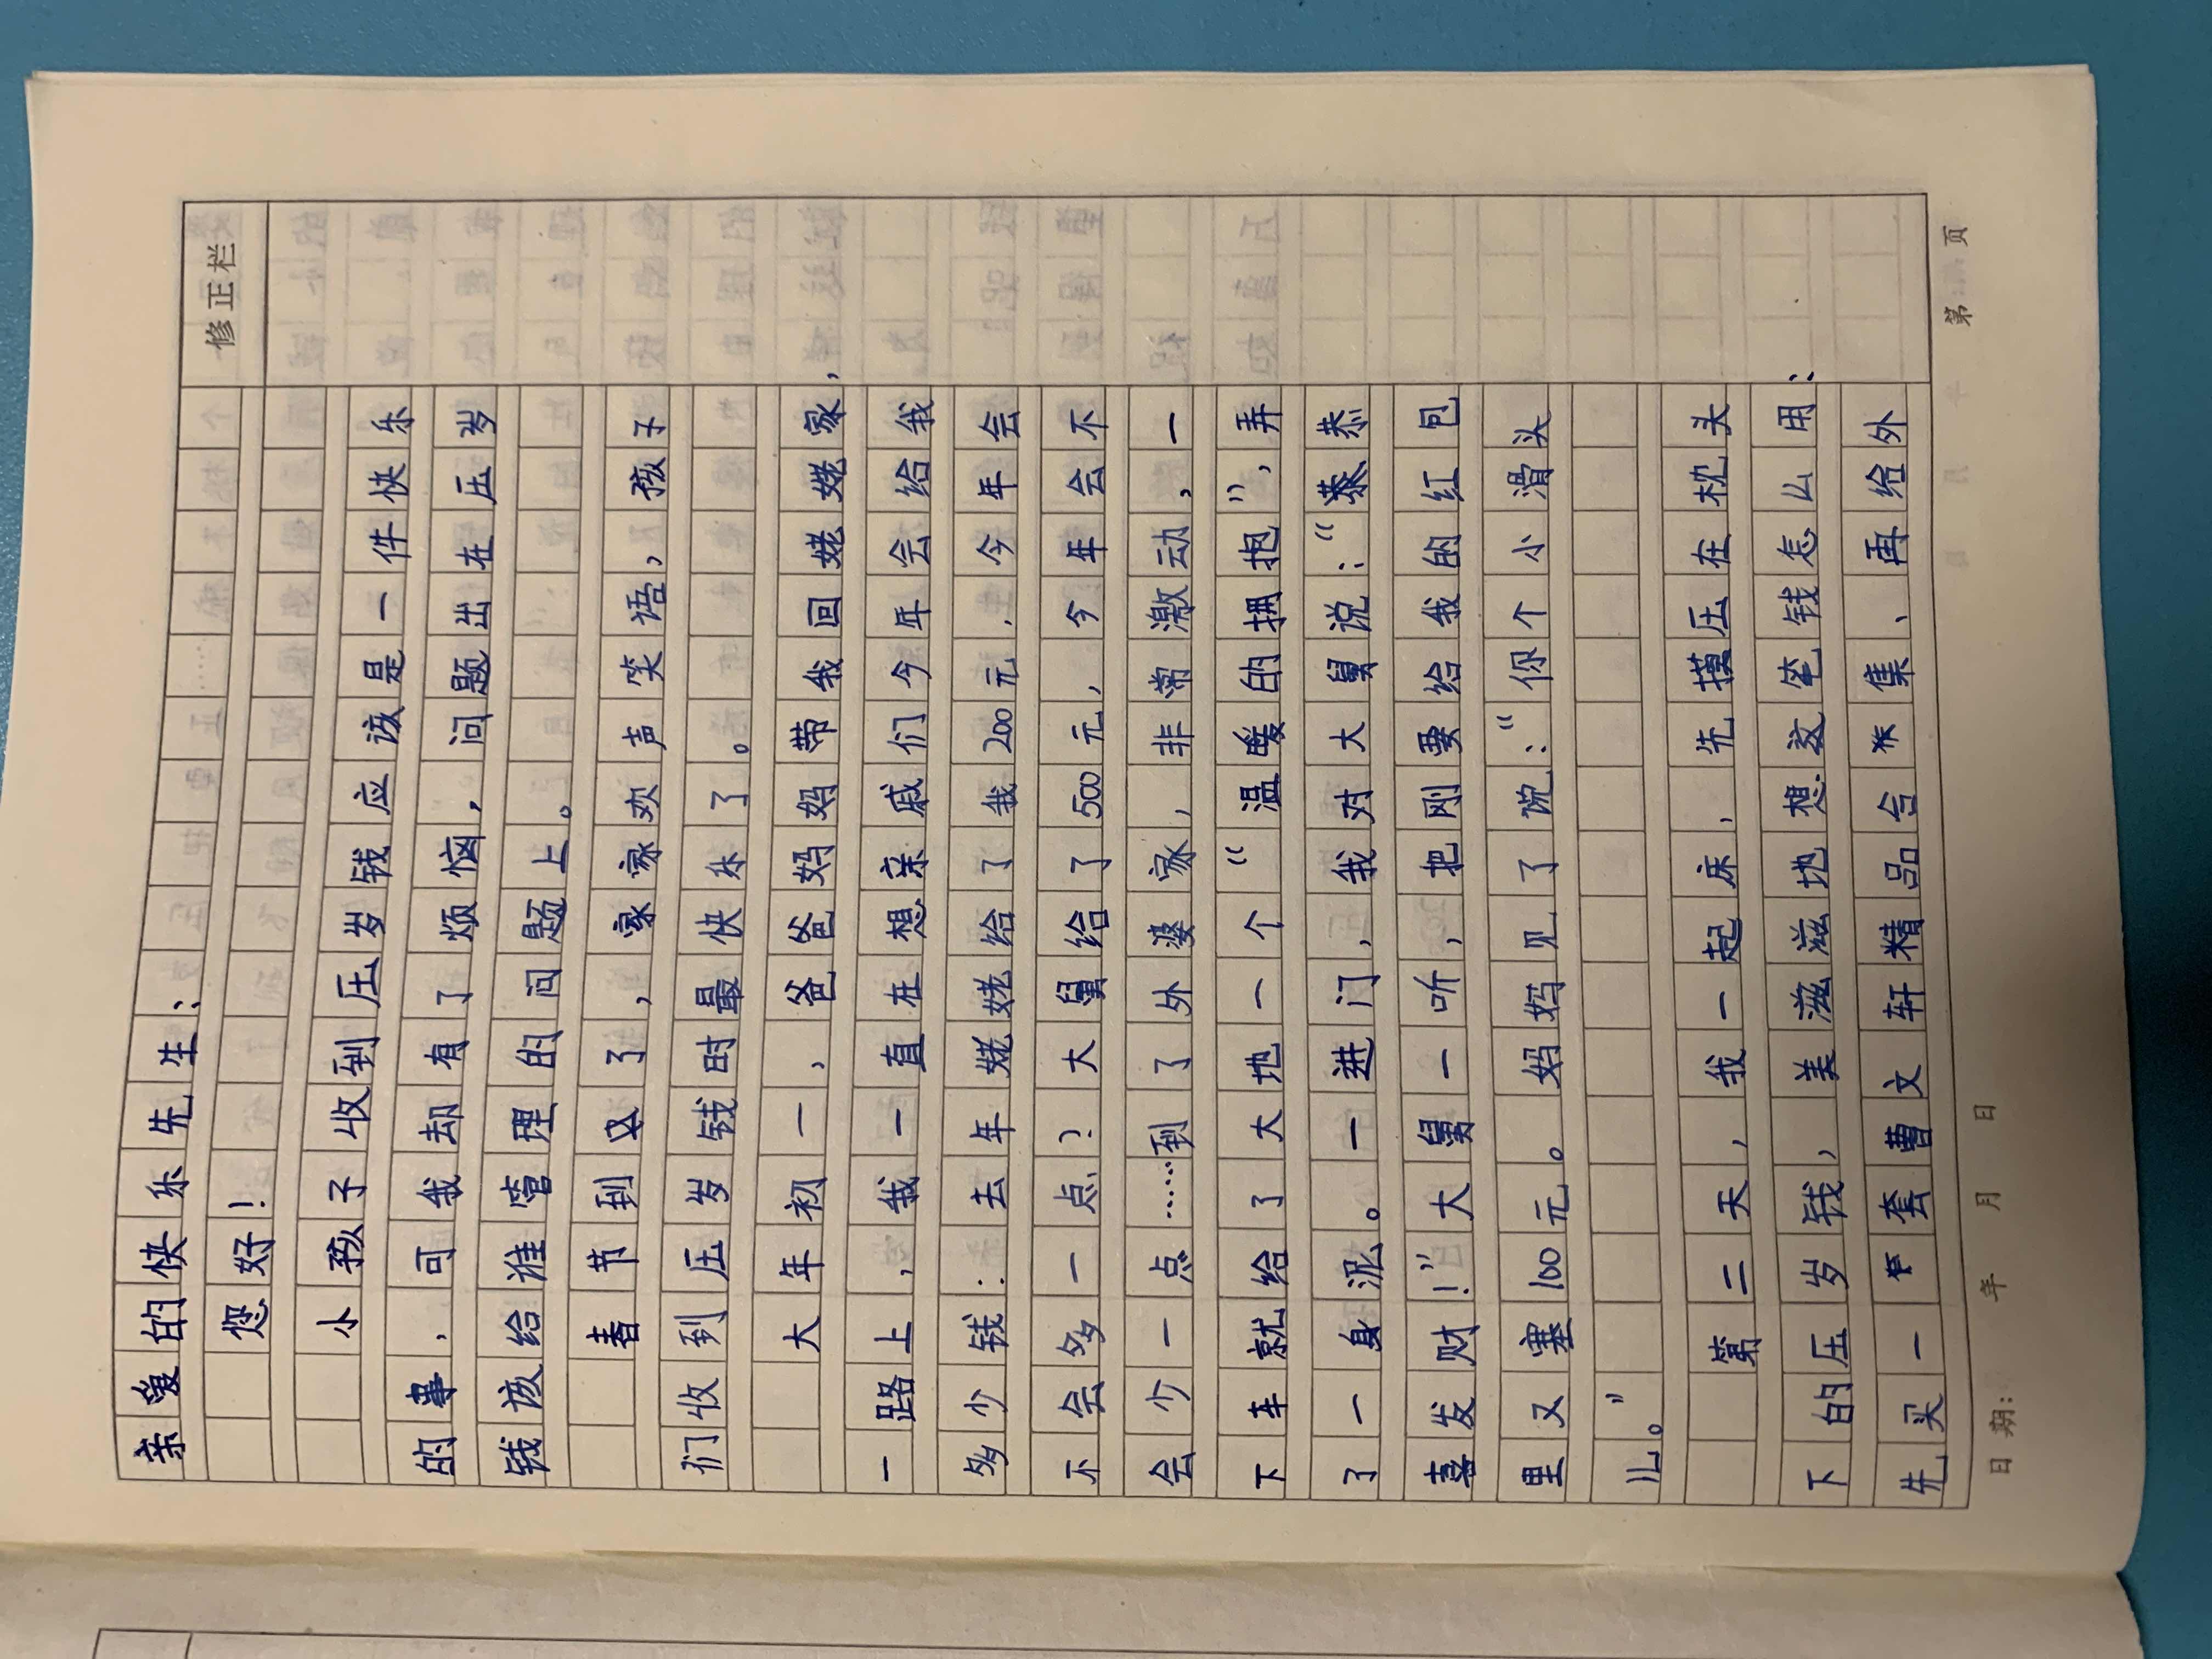 修正栏
亲爱的快乐先生：
您好！
小孩子收到压岁钱应该是一件快乐
的事，可我却有了烦恼，问题出在压岁
钱该给谁管理的问题上。
春节到了，家家欢声笑语，孩子
们收到压岁钱时最快乐了。
大年初一，爸爸妈妈带我回姥姥家，
一路上，我一直在想亲戚们今年会给我
多少钱：去年姥姥给了我200元，今年会
不会多一点？大舅给了500元，今年会不
会少一点……到了外婆家，非常激动，一
下车就给了大地一个“温暖的拥抱”，弄
了一身泥。一进门，我对大舅说：“恭恭
喜发财！”大舅一听，把刚要给我的红包
里又塞100元。妈妈见了说：“你个小滑头
儿。”
第二天，我一起床，先摸压在枕头
下的压岁钱，美滋滋地想这笔钱怎么用：
先买一套曹文轩精品合集、再给外
日期： 年 月 日 第 页